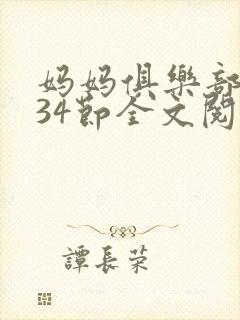 妈妈俱樂部
34節全文閱
譚長荣